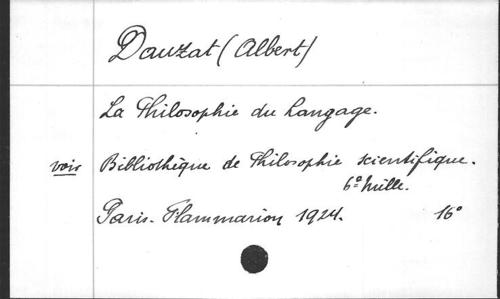 Dauzat (Albert)
La Philosophie du Langage.
voir Bibliothèque de Philosophie scientifique.
6º mille.
Paris. Flammarion 1924. 16º